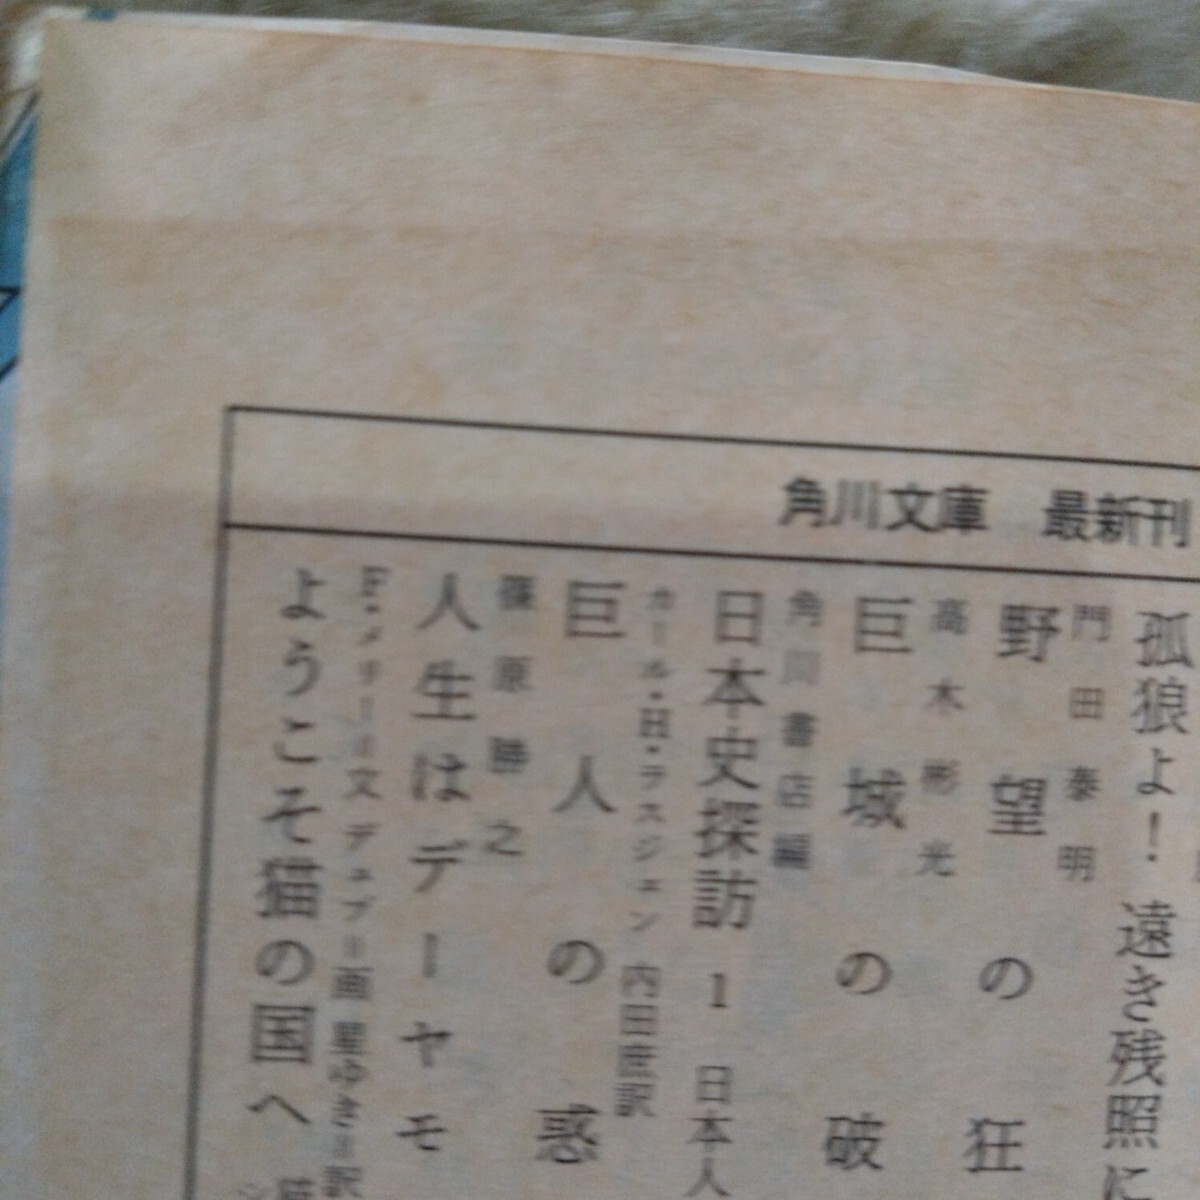 角川文庫　最新刊
孤狼よ！遠き残照に
門田泰明
野望の狂
高木彬光
巨城の破
角川書店編
日本史探訪 1 日本人
カール・H・ラスジェン 内田庶訳
巨人の惑
篠原勝之
人生はデーヤモ
F・メリー＝文 デュブー＝画 星ゆき＝訳
ようこそ猫の国へ 猫